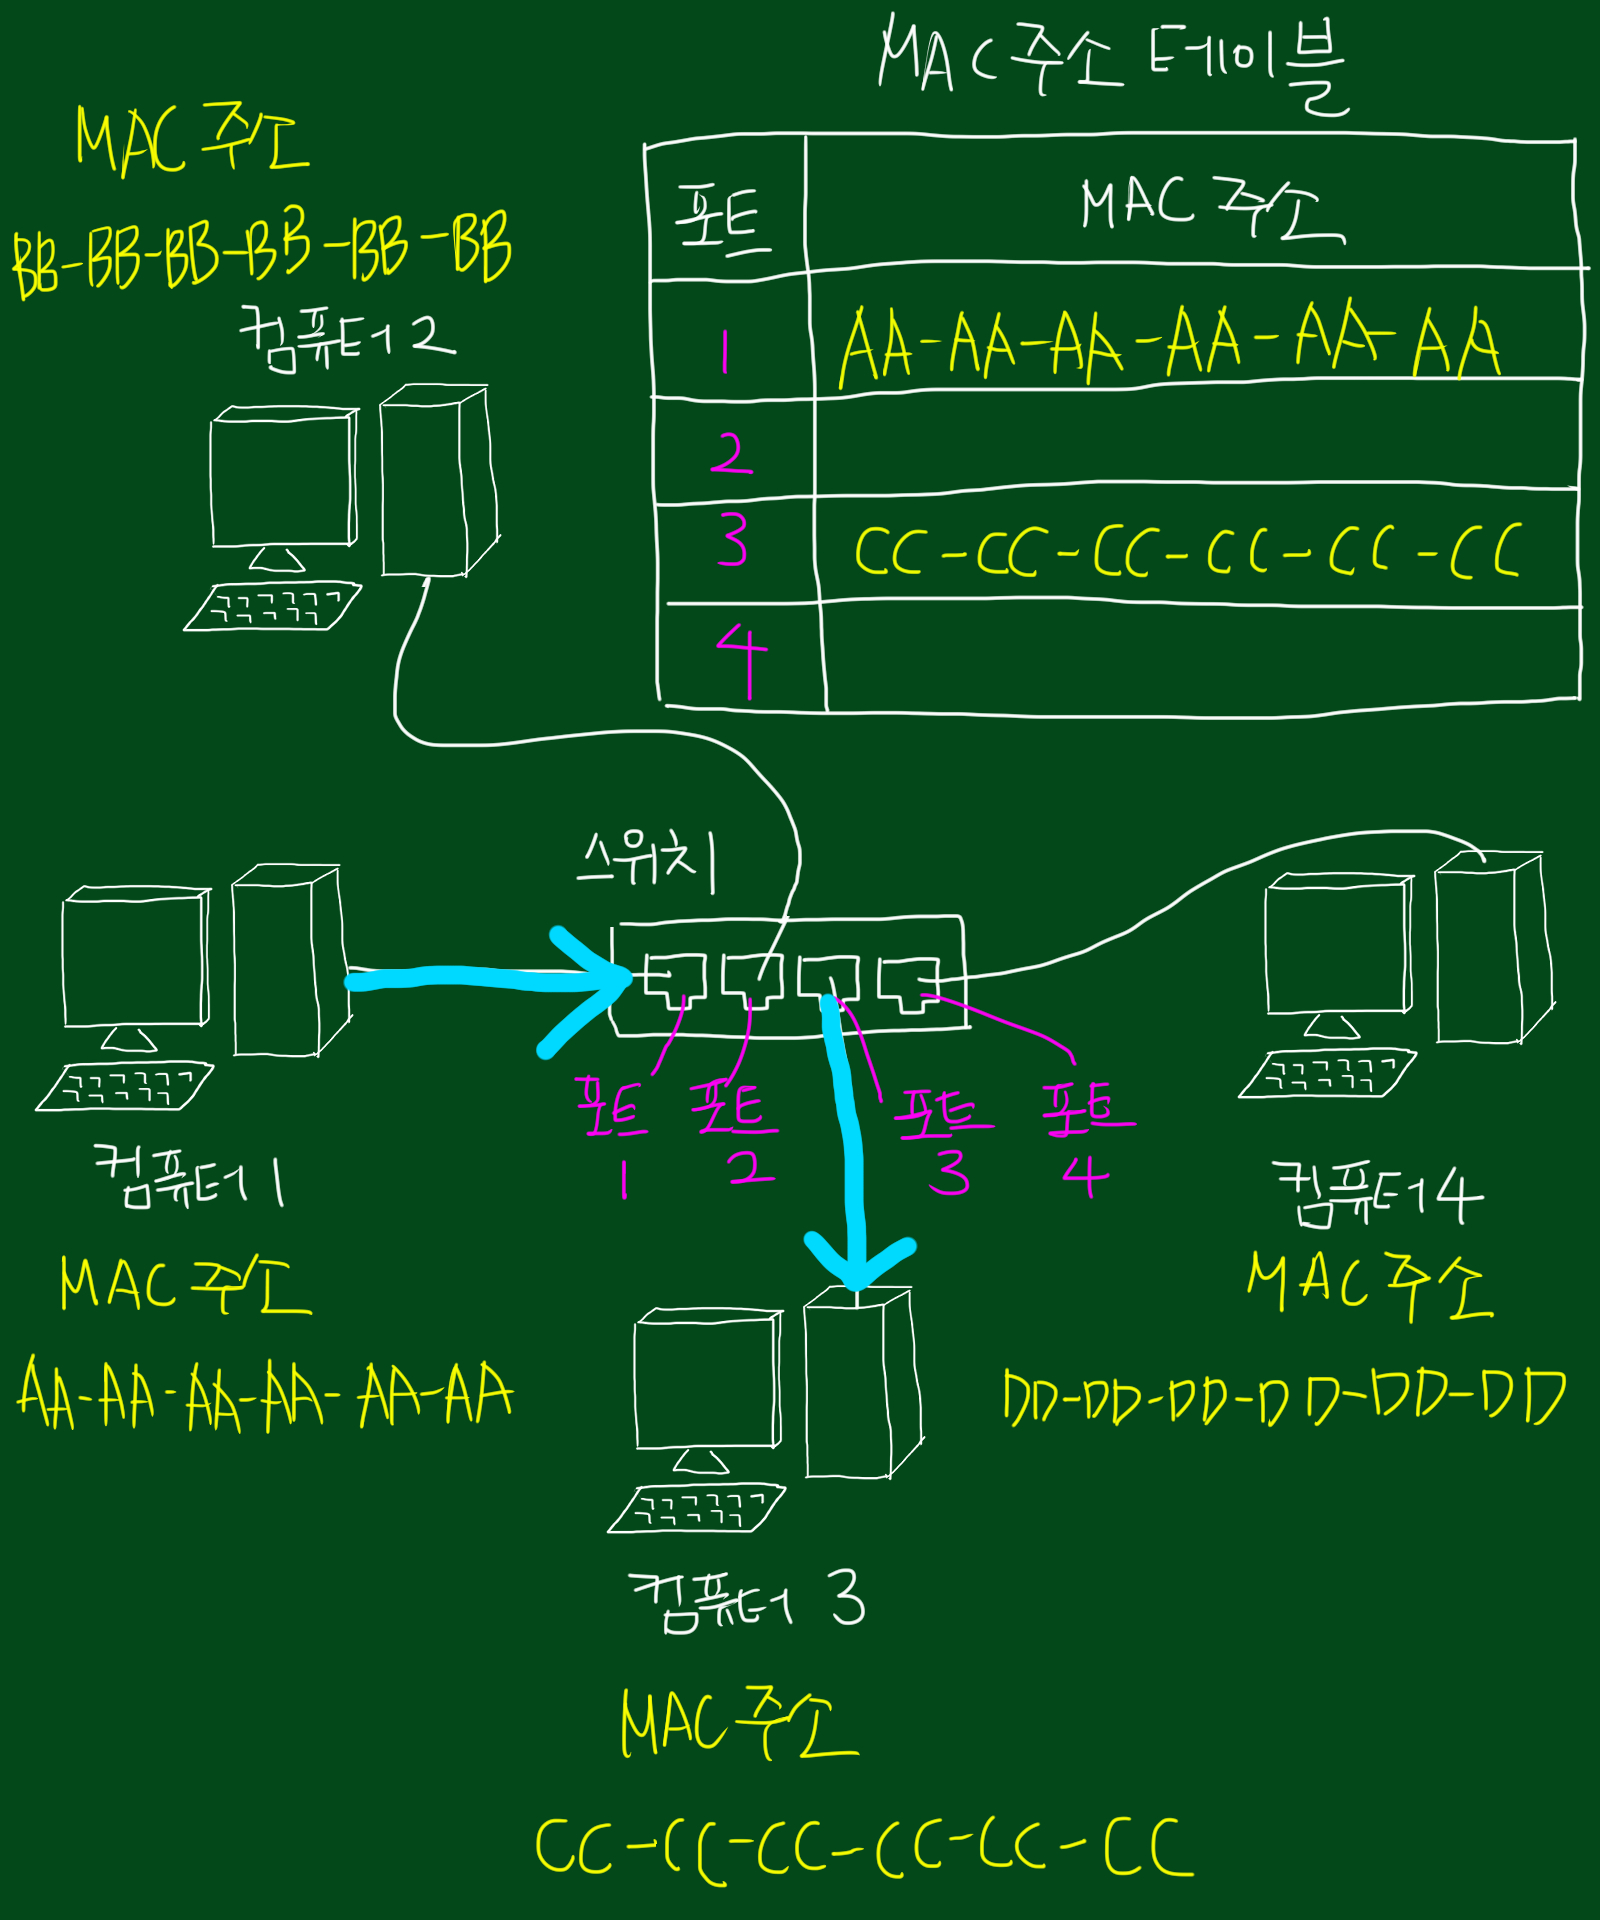 MAC 주소 테이블
포트 MAC 주소
1 AA-AA-AA-AA-AA-AA
2
3 CC-CC-CC-CC-CC-CC
4
MAC 주소
BB-BB-BB-BB-BB-BB
컴퓨터 2
스위치
포트 1
포트 2
포트 3
포트 4
컴퓨터 1
MAC 주소
AA-AA-AA-AA-AA-AA
컴퓨터 4
MAC 주소
DD-DD-DD-DD-DD-DD
컴퓨터 3
MAC 주소
CC-CC-CC-CC-CC-CC